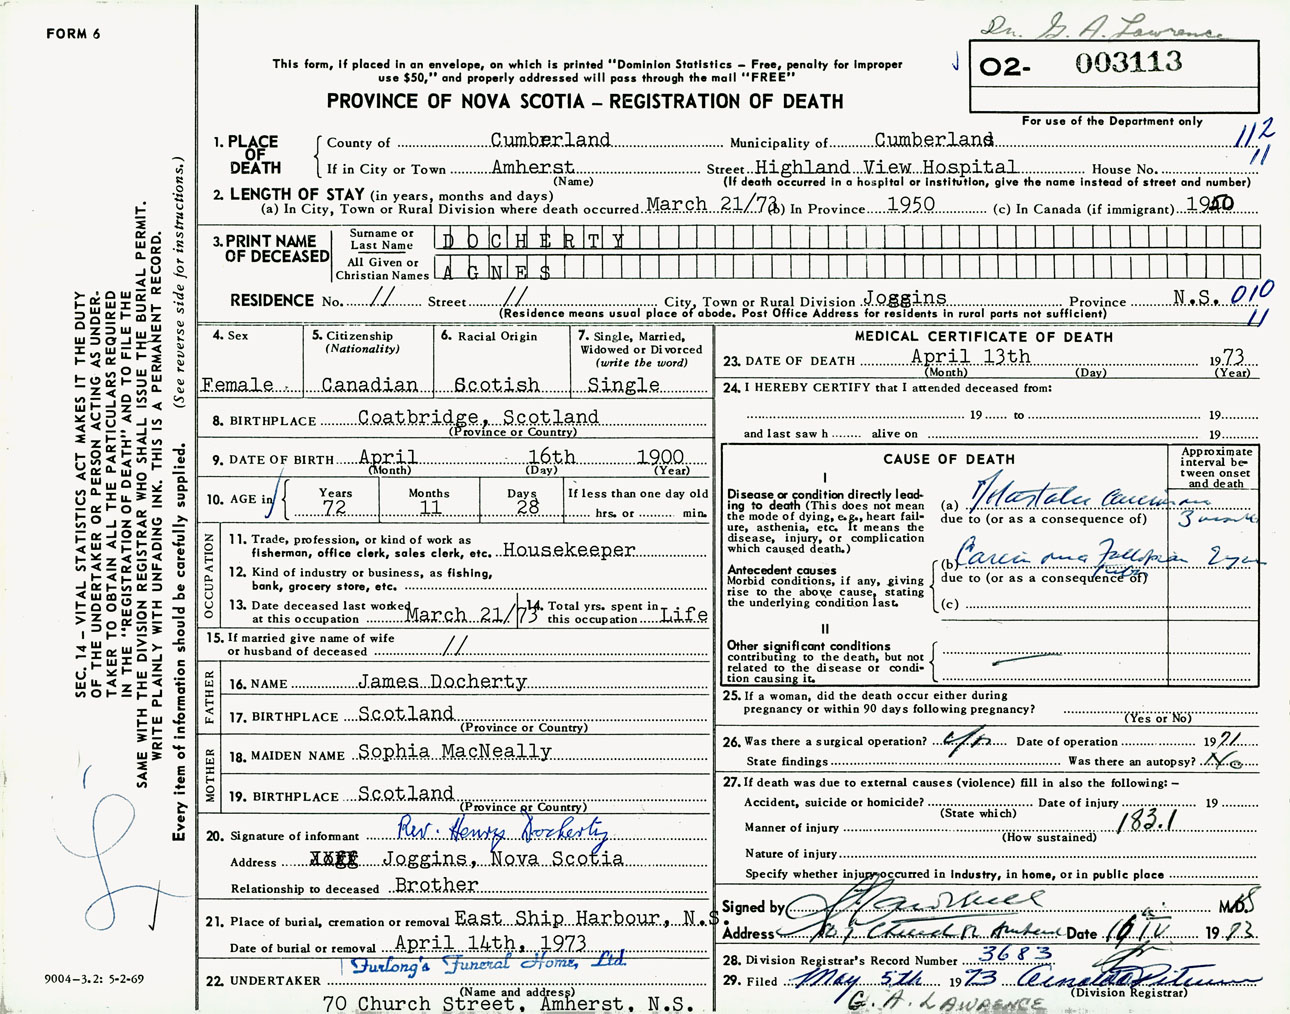 FORM 6
Dr. G. A. Lawrence
This form, if placed in an envelope, on which is printed "Dominion Statistics – Free, penalty for improper
use $50," and properly addressed will pass through the mail "FREE"
PROVINCE OF NOVA SCOTIA – REGISTRATION OF DEATH
O2- 003113
For use of the Department only
112
11
1. PLACE OF DEATH
County of Cumberland Municipality of Cumberland
If in City or Town Amherst Street Highland View Hospital House No.
(Name) (If death occurred in a hospital or institution, give the name instead of street and number)
2. LENGTH OF STAY (in years, months and days)
(a) In City, Town or Rural Division where death occurred March 21/73 (b) In Province 1950 (c) In Canada (if immigrant) 1950
3. PRINT NAME OF DECEASED
Surname or Last Name DOCHERTY
All Given or Christian Names AGNES
RESIDENCE No. // Street // City, Town or Rural Division Joggins Province N.S. 010
11
(Residence means usual place of abode. Post Office Address for residents in rural parts not sufficient)
4. Sex
Female
5. Citizenship
(Nationality)
Canadian
6. Racial Origin
Scotish
7. Single, Married,
Widowed or Divorced
(write the word)
Single
8. BIRTHPLACE Coatbridge, Scotland
(Province or Country)
9. DATE OF BIRTH April 16th 1900
(Month) (Day) (Year)
10. AGE in
Years 72
Months 11
Days 28
If less than one day old
hrs. or min.
OCCUPATION
11. Trade, profession, or kind of work as
fisherman, office clerk, sales clerk, etc. Housekeeper
12. Kind of industry or business, as fishing,
bank, grocery store, etc.
13. Date deceased last worked
at this occupation March 21/73
14. Total yrs. spent in
this occupation Life
15. If married give name of wife
or husband of deceased //
FATHER
16. NAME James Docherty
17. BIRTHPLACE Scotland
(Province or Country)
MOTHER
18. MAIDEN NAME Sophia MacNeally
19. BIRTHPLACE Scotland
(Province or Country)
20. Signature of informant Rev. Henry Docherty
Address Joggins, Nova Scotia
Relationship to deceased Brother
21. Place of burial, cremation or removal East Ship Harbour, N.S.
Date of burial or removal April 14th, 1973
22. UNDERTAKER Furlong's Funeral Home, Ltd.
(Name and address)
70 Church Street, Amherst, N.S.
MEDICAL CERTIFICATE OF DEATH
23. DATE OF DEATH April 13th 1973
(Month) (Day) (Year)
24. I HEREBY CERTIFY that I attended deceased from:
19 to 19
and last saw h alive on 19
CAUSE OF DEATH
Approximate
interval be-
tween onset
and death
I
Disease or condition directly lead-
ing to death (This does not mean
the mode of dying, e.g., heart fail-
ure, asthenia, etc. It means the
disease, injury, or complication
which caused death.)
(a)
due to (or as a consequence of) 3
(b) Carcinoma Fallopian 2
tube
due to (or as a consequence of)
(c)
Antecedent causes
Morbid conditions, if any, giving
rise to the above cause, stating
the underlying condition last.
II
Other significant conditions
contributing to the death, but not
related to the disease or condi-
tion causing it.
25. If a woman, did the death occur either during
pregnancy or within 90 days following pregnancy?
(Yes or No)
26. Was there a surgical operation? Date of operation 1971
State findings Was there an autopsy? No
27. If death was due to external causes (violence) fill in also the following: –
Accident, suicide or homicide? Date of injury 19
(State which)
Manner of injury 183.1
(How sustained)
Nature of injury
Specify whether injury occurred in industry, in home, or in public place
Signed by M.D.
Address Church Amherst Date 1973
28. Division Registrar's Record Number 3683
29. Filed May 5th 1973
(Division Registrar)
G. A. LAWRENCE
SEC. 14 – VITAL STATISTICS ACT MAKES IT THE DUTY
OF THE UNDERTAKER OR PERSON ACTING AS UNDER-
TAKER TO OBTAIN ALL THE PARTICULARS REQUIRED
IN THE "REGISTRATION OF DEATH" AND TO FILE THE
SAME WITH THE DIVISION REGISTRAR WHO SHALL ISSUE THE BURIAL PERMIT.
WRITE PLAINLY WITH UNFADING INK. THIS IS A PERMANENT RECORD.
Every item of information should be carefully supplied. (See reverse side for instructions.)
9004-3.2: 5-2-69